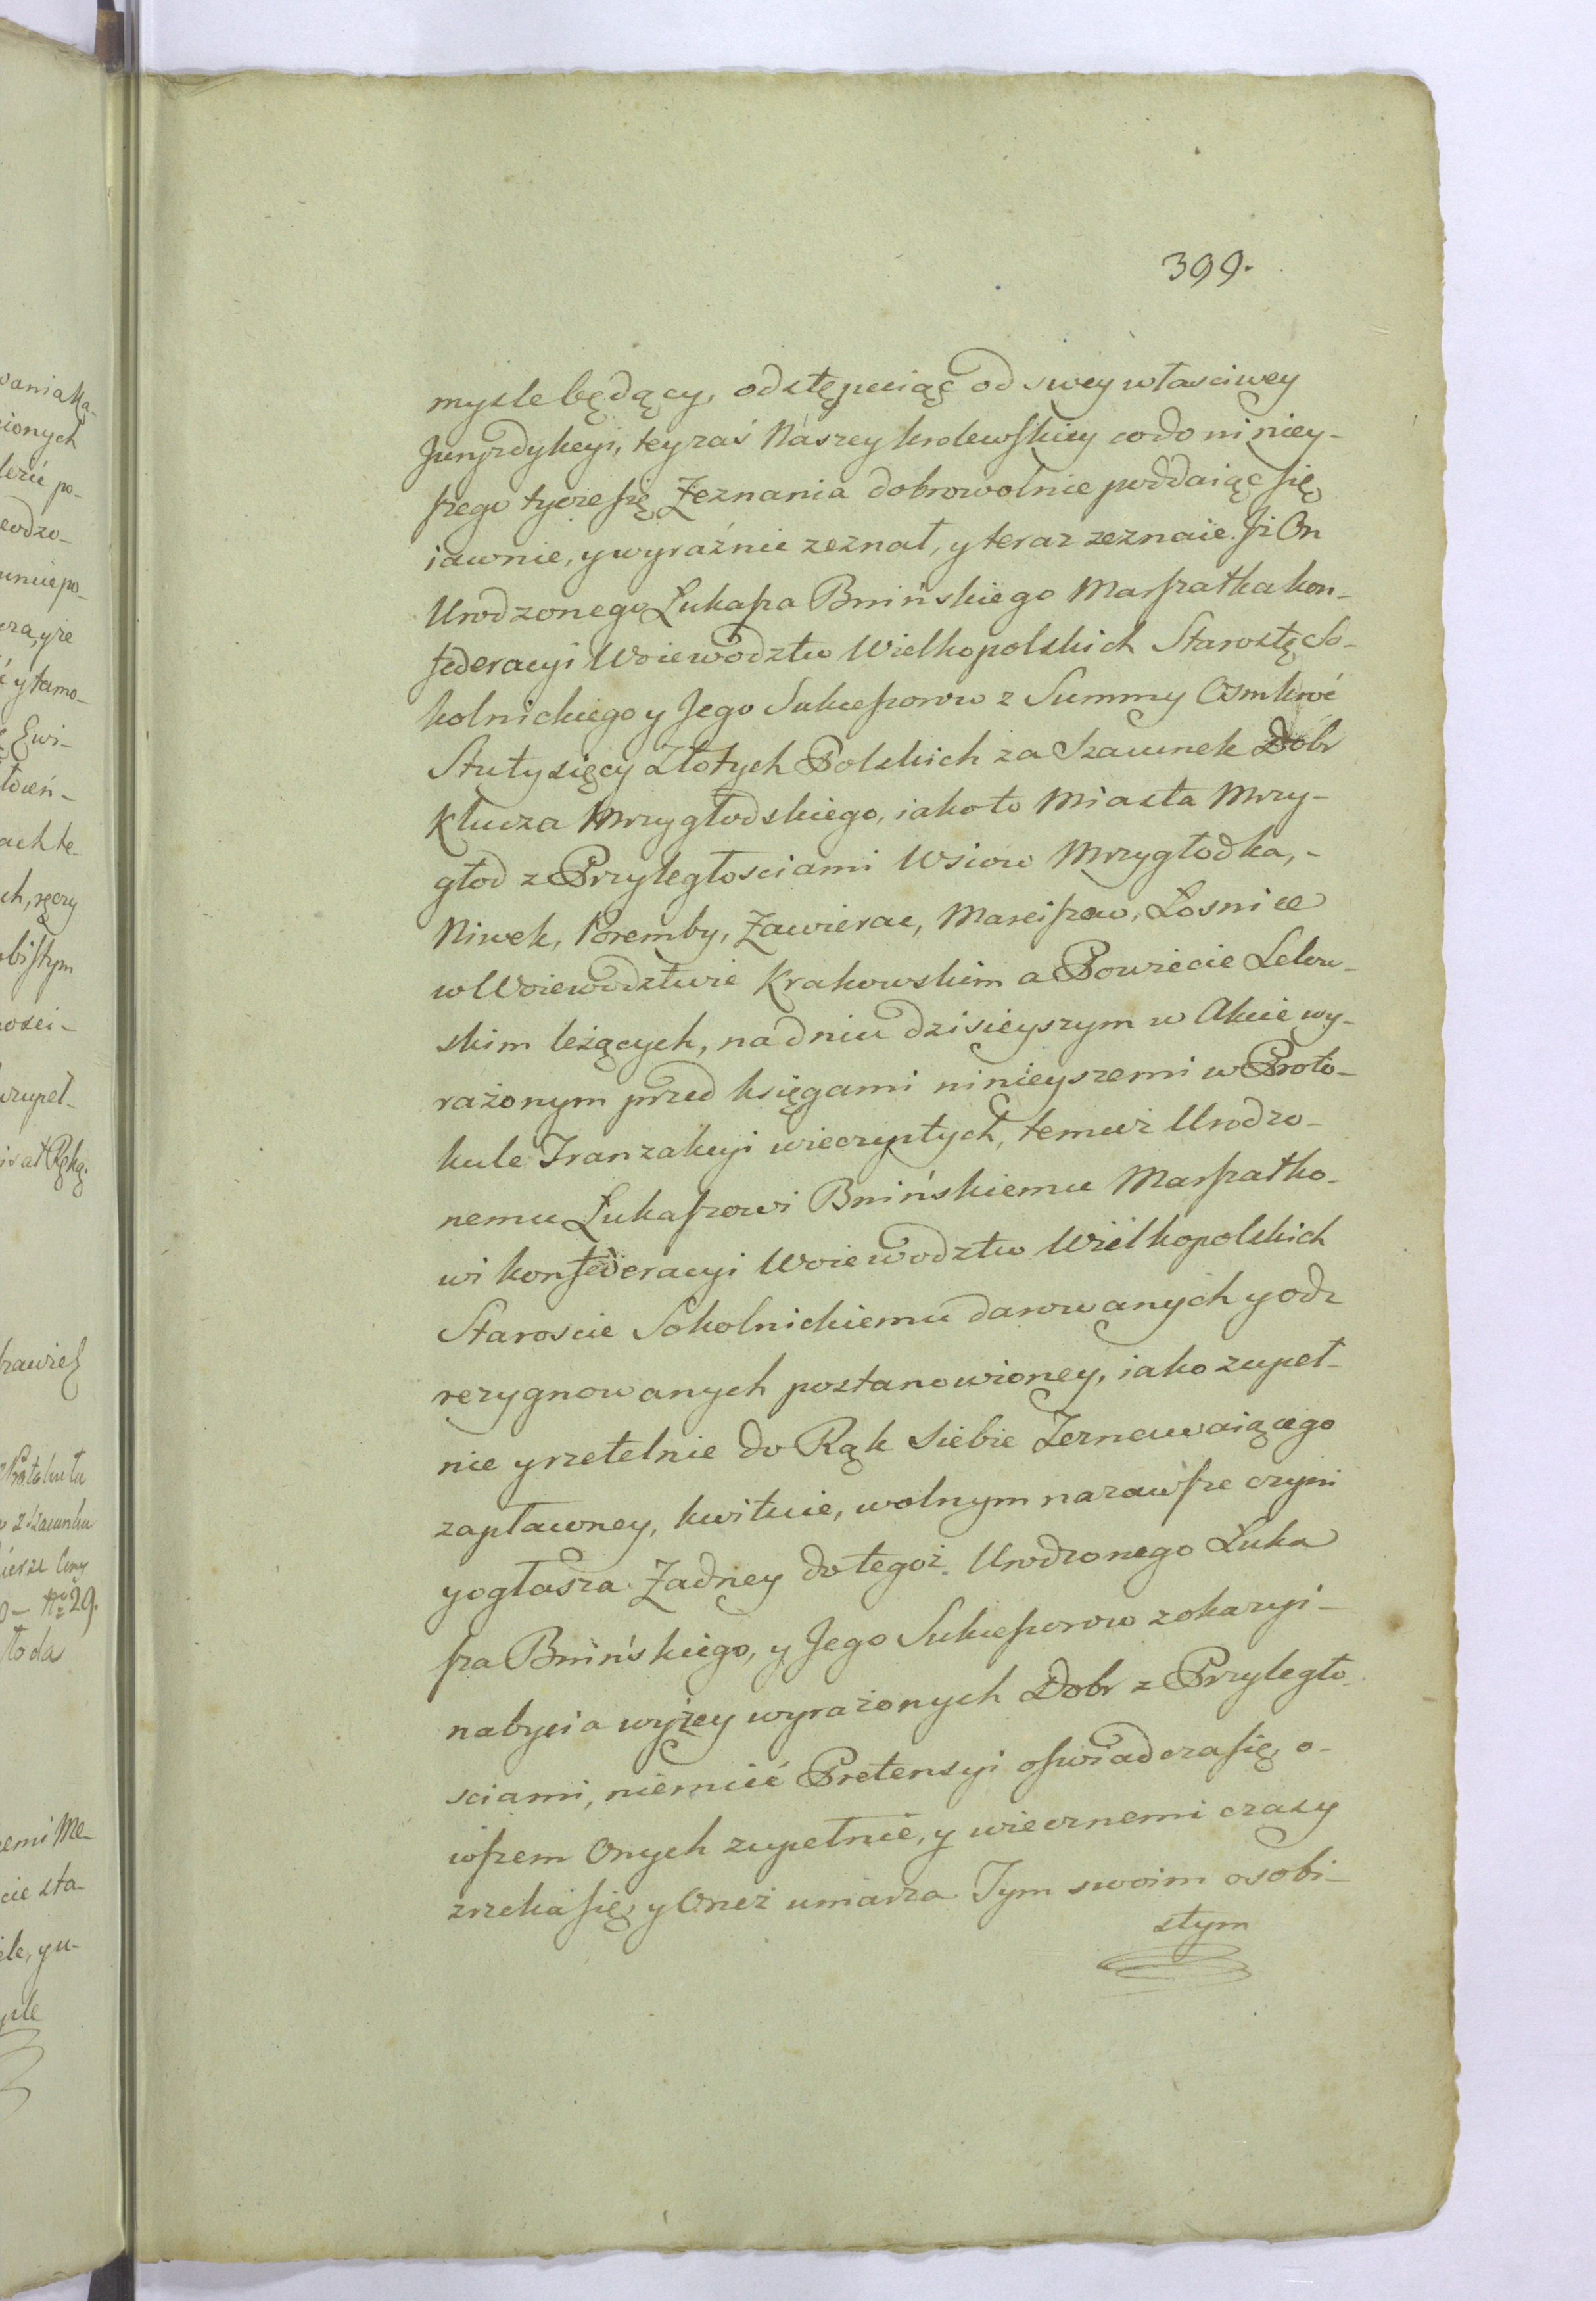 399.
mysle będący, odstępuiąc od swey własciwey
Juryzdykcyi, tey zaś Nászey krolewskiey co do niniey-
szego tycze się Zeznania dobrowolnie poddaiąc się
iawnie, y wyraźnie zeznał, y teraz zeznaie. Jż On
Urodzonego Łukasza Bnińskiego Marszałka kon-
federacyi Woiewodztw Wielkopolskich Starostę So-
kolnickiego y Jego Sukcessorow z Summy Osmkroć
Stutysięcy Złotych Polskich za Szacunek Dobr
Klucza Mrzygłodskiego, iako to Miasta Mrzy-
głod z Przyległosciami Wsiow Mrzygłodka,-
Niwek, Poremby, Zawierac, Marciszow, Łosnice
w Woiewodztwie Krakowskim a Powiecie Lelow-
skim leżących, na dniu dzisieyszym w Akcie wy-
rażonym przed księgami ninieyszemi w Proto-
kule Tranzakcyi wieczystych, temuż Urodzo-
nemu Łukaszowi Bnińskiemu Marszałko-
wi konfederacyi Woiewodztw Wielkopolskich
Staroscie Sokolnickiemu darowanych y odr
rezygnowanych postanowioney, iako zupeł-
nie y rzetelnie do Rąk Siebie Zeznawaiącego
zapłacwney, kwituie, wolnym na zawsze czyni
y ogłasza. Zadney do tegoż Urodzonego Łuka
sza Bnińskiego, y Jego Sukcessorow z okazyi-
nabycia wyżey wyrażonych Dobr z Przyległo-
sciami, niemieć Pretensyi oswiadcza się, o-
wszem Onych zupełnie, y wiecznemi czasy
zrzeka się, y Oneż umarza. Tym swoim osobi-
stym